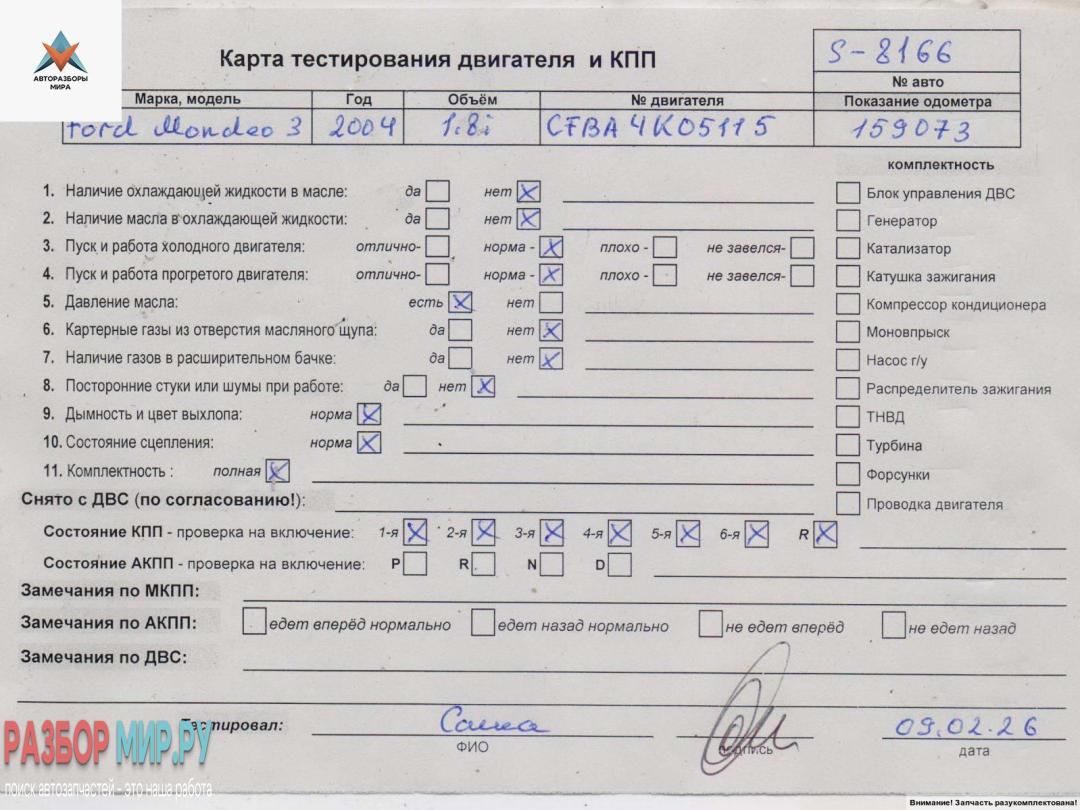 АВТОРАЗБОРЫ
МИРА
Карта тестирования двигателя и КПП
S-8166
№ авто
Марка, модель Год Объём № двигателя Показание одометра
Ford Mondeo 3 2004 1.8i CFBA 4K05115 159073
комплектность
1. Наличие охлаждающей жидкости в масле: да нет Блок управления ДВС
2. Наличие масла в охлаждающей жидкости: да нет Генератор
3. Пуск и работа холодного двигателя: отлично- норма - плохо - не завелся- Катализатор
4. Пуск и работа прогретого двигателя: отлично- норма - плохо - не завелся- Катушка зажигания
5. Давление масла: есть нет Компрессор кондиционера
6. Картерные газы из отверстия масляного щупа: да нет Моновпрыск
7. Наличие газов в расширительном бачке: да нет Насос г/у
8. Посторонние стуки или шумы при работе: да нет Распределитель зажигания
9. Дымность и цвет выхлопа: норма ТНВД
10. Состояние сцепления: норма Турбина
11. Комплектность : полная Форсунки
Снято с ДВС (по согласованию!): Проводка двигателя
Состояние КПП - проверка на включение: 1-я 2-я 3-я 4-я 5-я 6-я R
Состояние АКПП - проверка на включение: P R N D
Замечания по МКПП:
Замечания по АКПП: едет вперёд нормально едет назад нормально не едет вперёд не едет назад
Замечания по ДВС:
Тестировал: Саша 09.02.26
ФИО подпись дата
РАЗБОРМИР.РУ
поиск автозапчастей - это наша работа
Внимание! Запчасть разукомплектована!